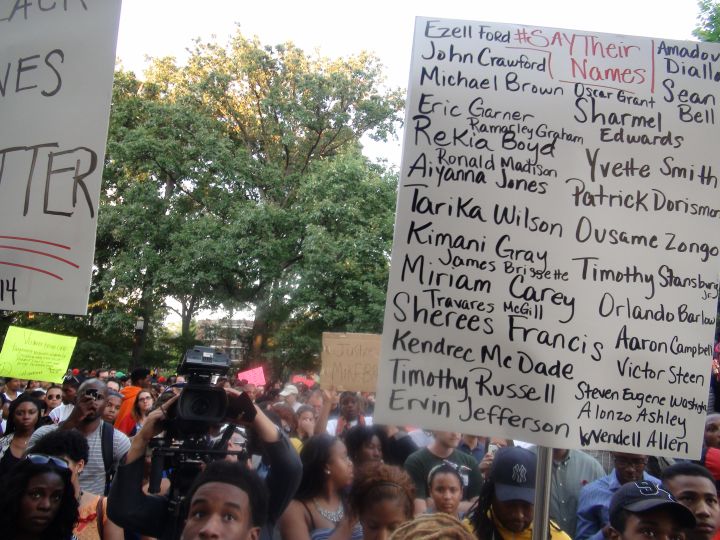 ACK
VES
TTER
14
#SAYTheir
Names
Ezell Ford
John Crawford
Michael Brown
Eric Garner
Ramarley Graham
Rekia Boyd
Ronald Madison
Aiyanna Jones
Tarika Wilson
Kimani Gray
James Brissette
Miriam Carey
Travares McGill
Sherees Francis
Kendrec McDade
Timothy Russell
Ervin Jefferson
Amadou
Diallo
Oscar Grant
Sean
Bell
Sharmel
Edwards
Yvette Smith
Patrick Dorismon
Ousame Zongo
Timothy Stansbury
Jr.
Orlando Barlow
Aaron Campbell
Victor Steen
Steven Eugene Washin
Alonzo Ashley
Wendell Allen
Justice